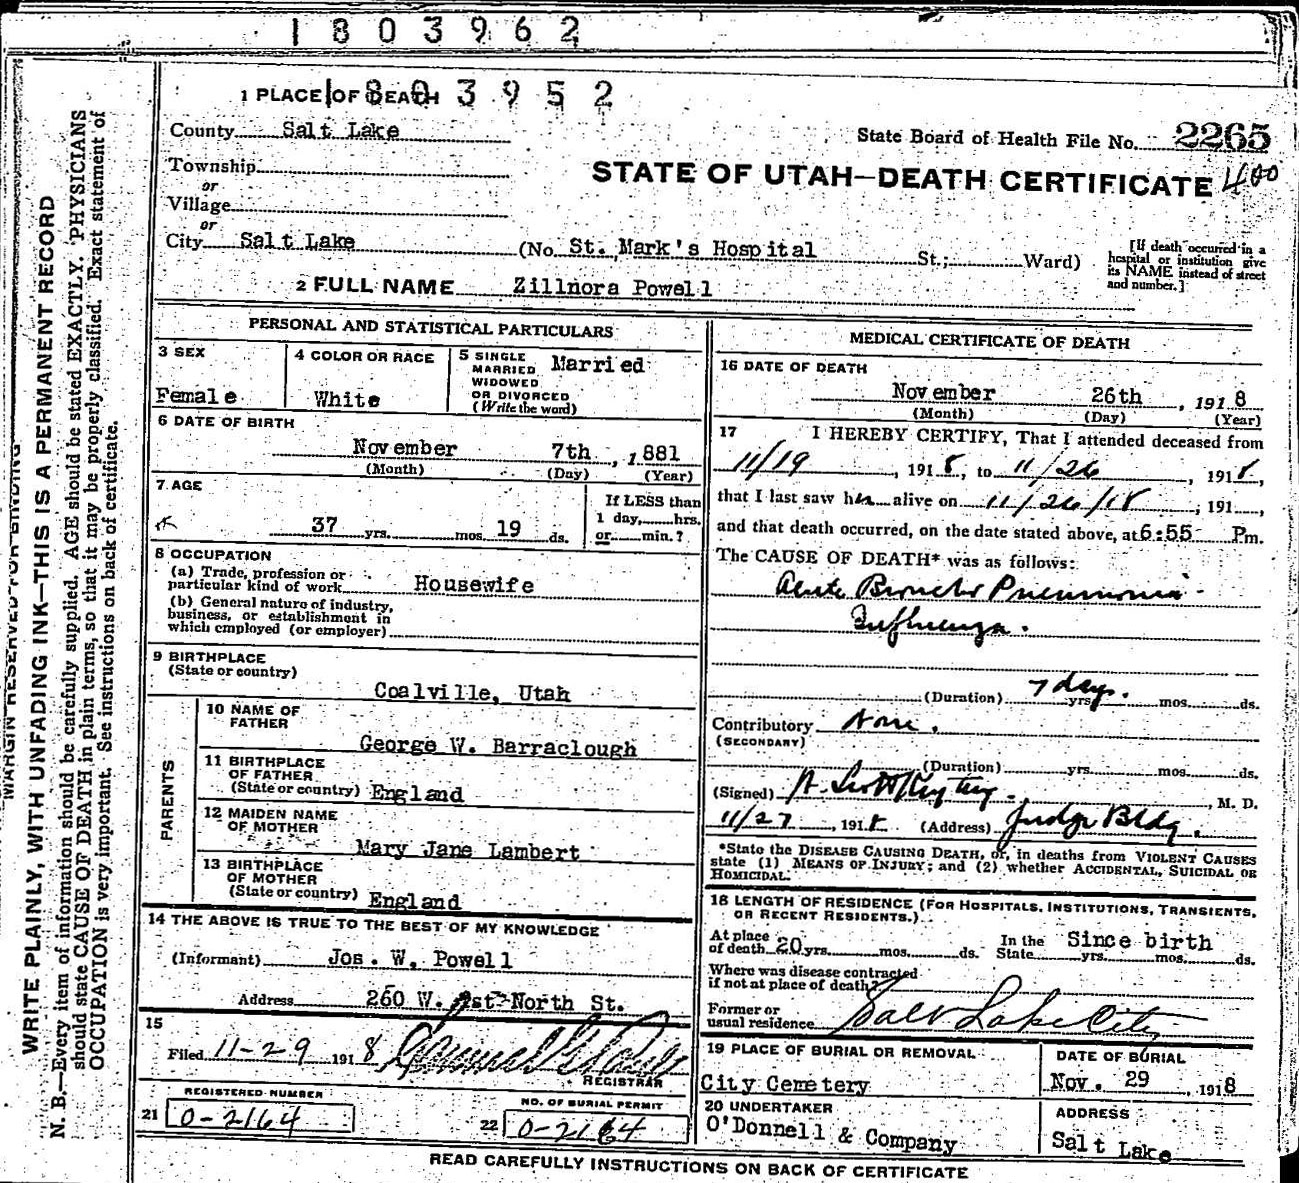 1803962
1803952
1 PLACE OF DEATH
County Salt Lake
State Board of Health File No. 2265
Township
or
STATE OF UTAH—DEATH CERTIFICATE 400
Village
or
City Salt Lake (No. St. Mark's Hospital St.; Ward)
[If death occurred in a
hospital or institution give
its NAME instead of street
and number.]
2 FULL NAME Zillnora Powell
PERSONAL AND STATISTICAL PARTICULARS
3 SEX
Female
4 COLOR OR RACE
White
5 SINGLE
MARRIED
WIDOWED
OR DIVORCED
(Write the word)
Married
6 DATE OF BIRTH
November 7th, 1881
(Month) (Day) (Year)
7 AGE
37 yrs. mos. 19 ds.
If LESS than
1 day, hrs.
or min.?
8 OCCUPATION
(a) Trade, profession or
particular kind of work Housewife
(b) General nature of industry,
business, or establishment in
which employed (or employer)
9 BIRTHPLACE
(State or country)
Coalville, Utah
PARENTS
10 NAME OF
FATHER
George W. Barraclough
11 BIRTHPLACE
OF FATHER
(State or country) England
12 MAIDEN NAME
OF MOTHER
Mary Jane Lambert
13 BIRTHPLACE
OF MOTHER
(State or country) England
14 THE ABOVE IS TRUE TO THE BEST OF MY KNOWLEDGE
(Informant) Jos. W. Powell
Address 260 W. 1st North St.
15
Filed 11-29 1918
REGISTRAR
REGISTERED NUMBER
21 0-2164
NO. OF BURIAL PERMIT
22 0-2164
MEDICAL CERTIFICATE OF DEATH
16 DATE OF DEATH
November 26th, 1918
(Month) (Day) (Year)
17 I HEREBY CERTIFY, That I attended deceased from
11/19, 1918, to 11/26, 1918,
that I last saw her alive on 11/26/18, 191,
and that death occurred, on the date stated above, at 6:55 Pm.
The CAUSE OF DEATH* was as follows:
Acute Broncho Pneumonia -
Influenza.
(Duration) 7 days. yrs. mos. ds.
Contributory None.
(SECONDARY)
(Duration) yrs. mos. ds.
(Signed) , M. D.
11/27, 1918 (Address) Judge Bldg.
*State the DISEASE CAUSING DEATH, or, in deaths from VIOLENT CAUSES
state (1) MEANS OF INJURY; and (2) whether ACCIDENTAL, SUICIDAL OR
HOMICIDAL.
18 LENGTH OF RESIDENCE (FOR HOSPITALS, INSTITUTIONS, TRANSIENTS,
OR RECENT RESIDENTS.)
At place
of death 20 yrs. mos. ds.
In the
State Since birth yrs. mos. ds.
Where was disease contracted
if not at place of death?
Former or
usual residence Salt Lake City
19 PLACE OF BURIAL OR REMOVAL
City Cemetery
DATE OF BURIAL
Nov. 29, 1918
20 UNDERTAKER
O'Donnell & Company
ADDRESS
Salt Lake
READ CAREFULLY INSTRUCTIONS ON BACK OF CERTIFICATE
MARGIN RESERVED FOR BINDING
WRITE PLAINLY, WITH UNFADING INK—THIS IS A PERMANENT RECORD
N. B.—Every item of information should be carefully supplied. AGE should be stated EXACTLY. PHYSICIANS
should state CAUSE OF DEATH in plain terms, so that it may be properly classified. Exact statement of
OCCUPATION is very important. See instructions on back of certificate.